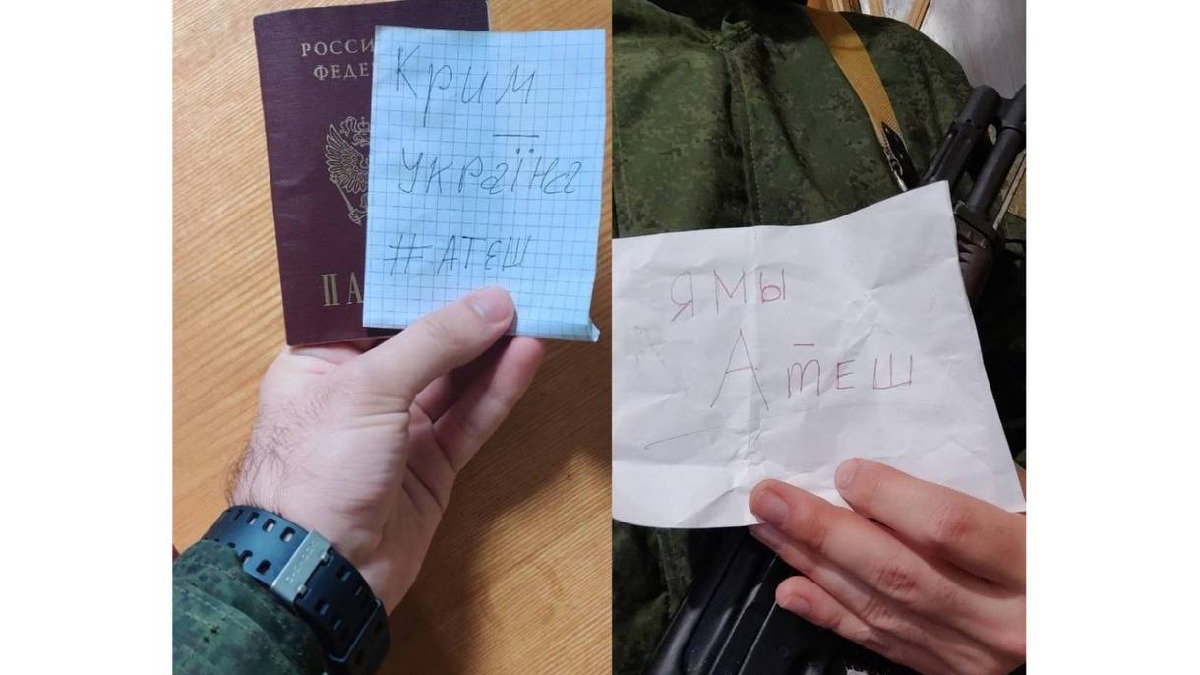 РОССИ
ФЕДЕ
ПА
Крим
Україна
#АТЕШ
Я МЫ
Атеш